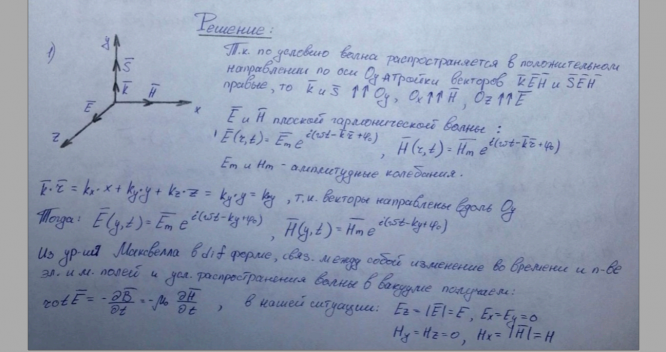 Решение:
1)
y
S̅
k̅
H̅
x
E̅
z
Т.к. по условию волна распространяется в положительном
направлении по оси Oy, а тройки векторов k̅E̅H̅ и S̅E̅H̅
правые, то k̅ и S̅ ↑↑ Oy, Ox↑↑H̅, Oz↑↑E̅
E̅ и H̅ плоской гармонической волны:
E̅(r,t) = E̅m e^i(ωt - k̅r̅ + φ₀), H̅(r,t) = H̅m e^i(ωt - k̅r̅ + φ₀)
Em и Hm - амплитудные колебания.
k̅·r̅ = kx·x + ky·y + kz·z = ky·y = ky, т.к. векторы направлены вдоль Oy
Тогда: E̅(y,t) = E̅m e^i(ωt - ky + φ₀), H̅(y,t) = H̅m e^i(ωt - ky + φ₀)
Из ур-ий Максвелла в dif форме, связ. между собой изменение во времени и п-ве
эл. и м. полей и усл. распространения волны в вакууме получаем:
rot E̅ = - ∂B̅/∂t = -μ₀ ∂H̅/∂t, в нашей ситуации: Ez = |E̅| = E, Ex = Ey = 0
Hy = Hz = 0, Hx = |H̅| = H